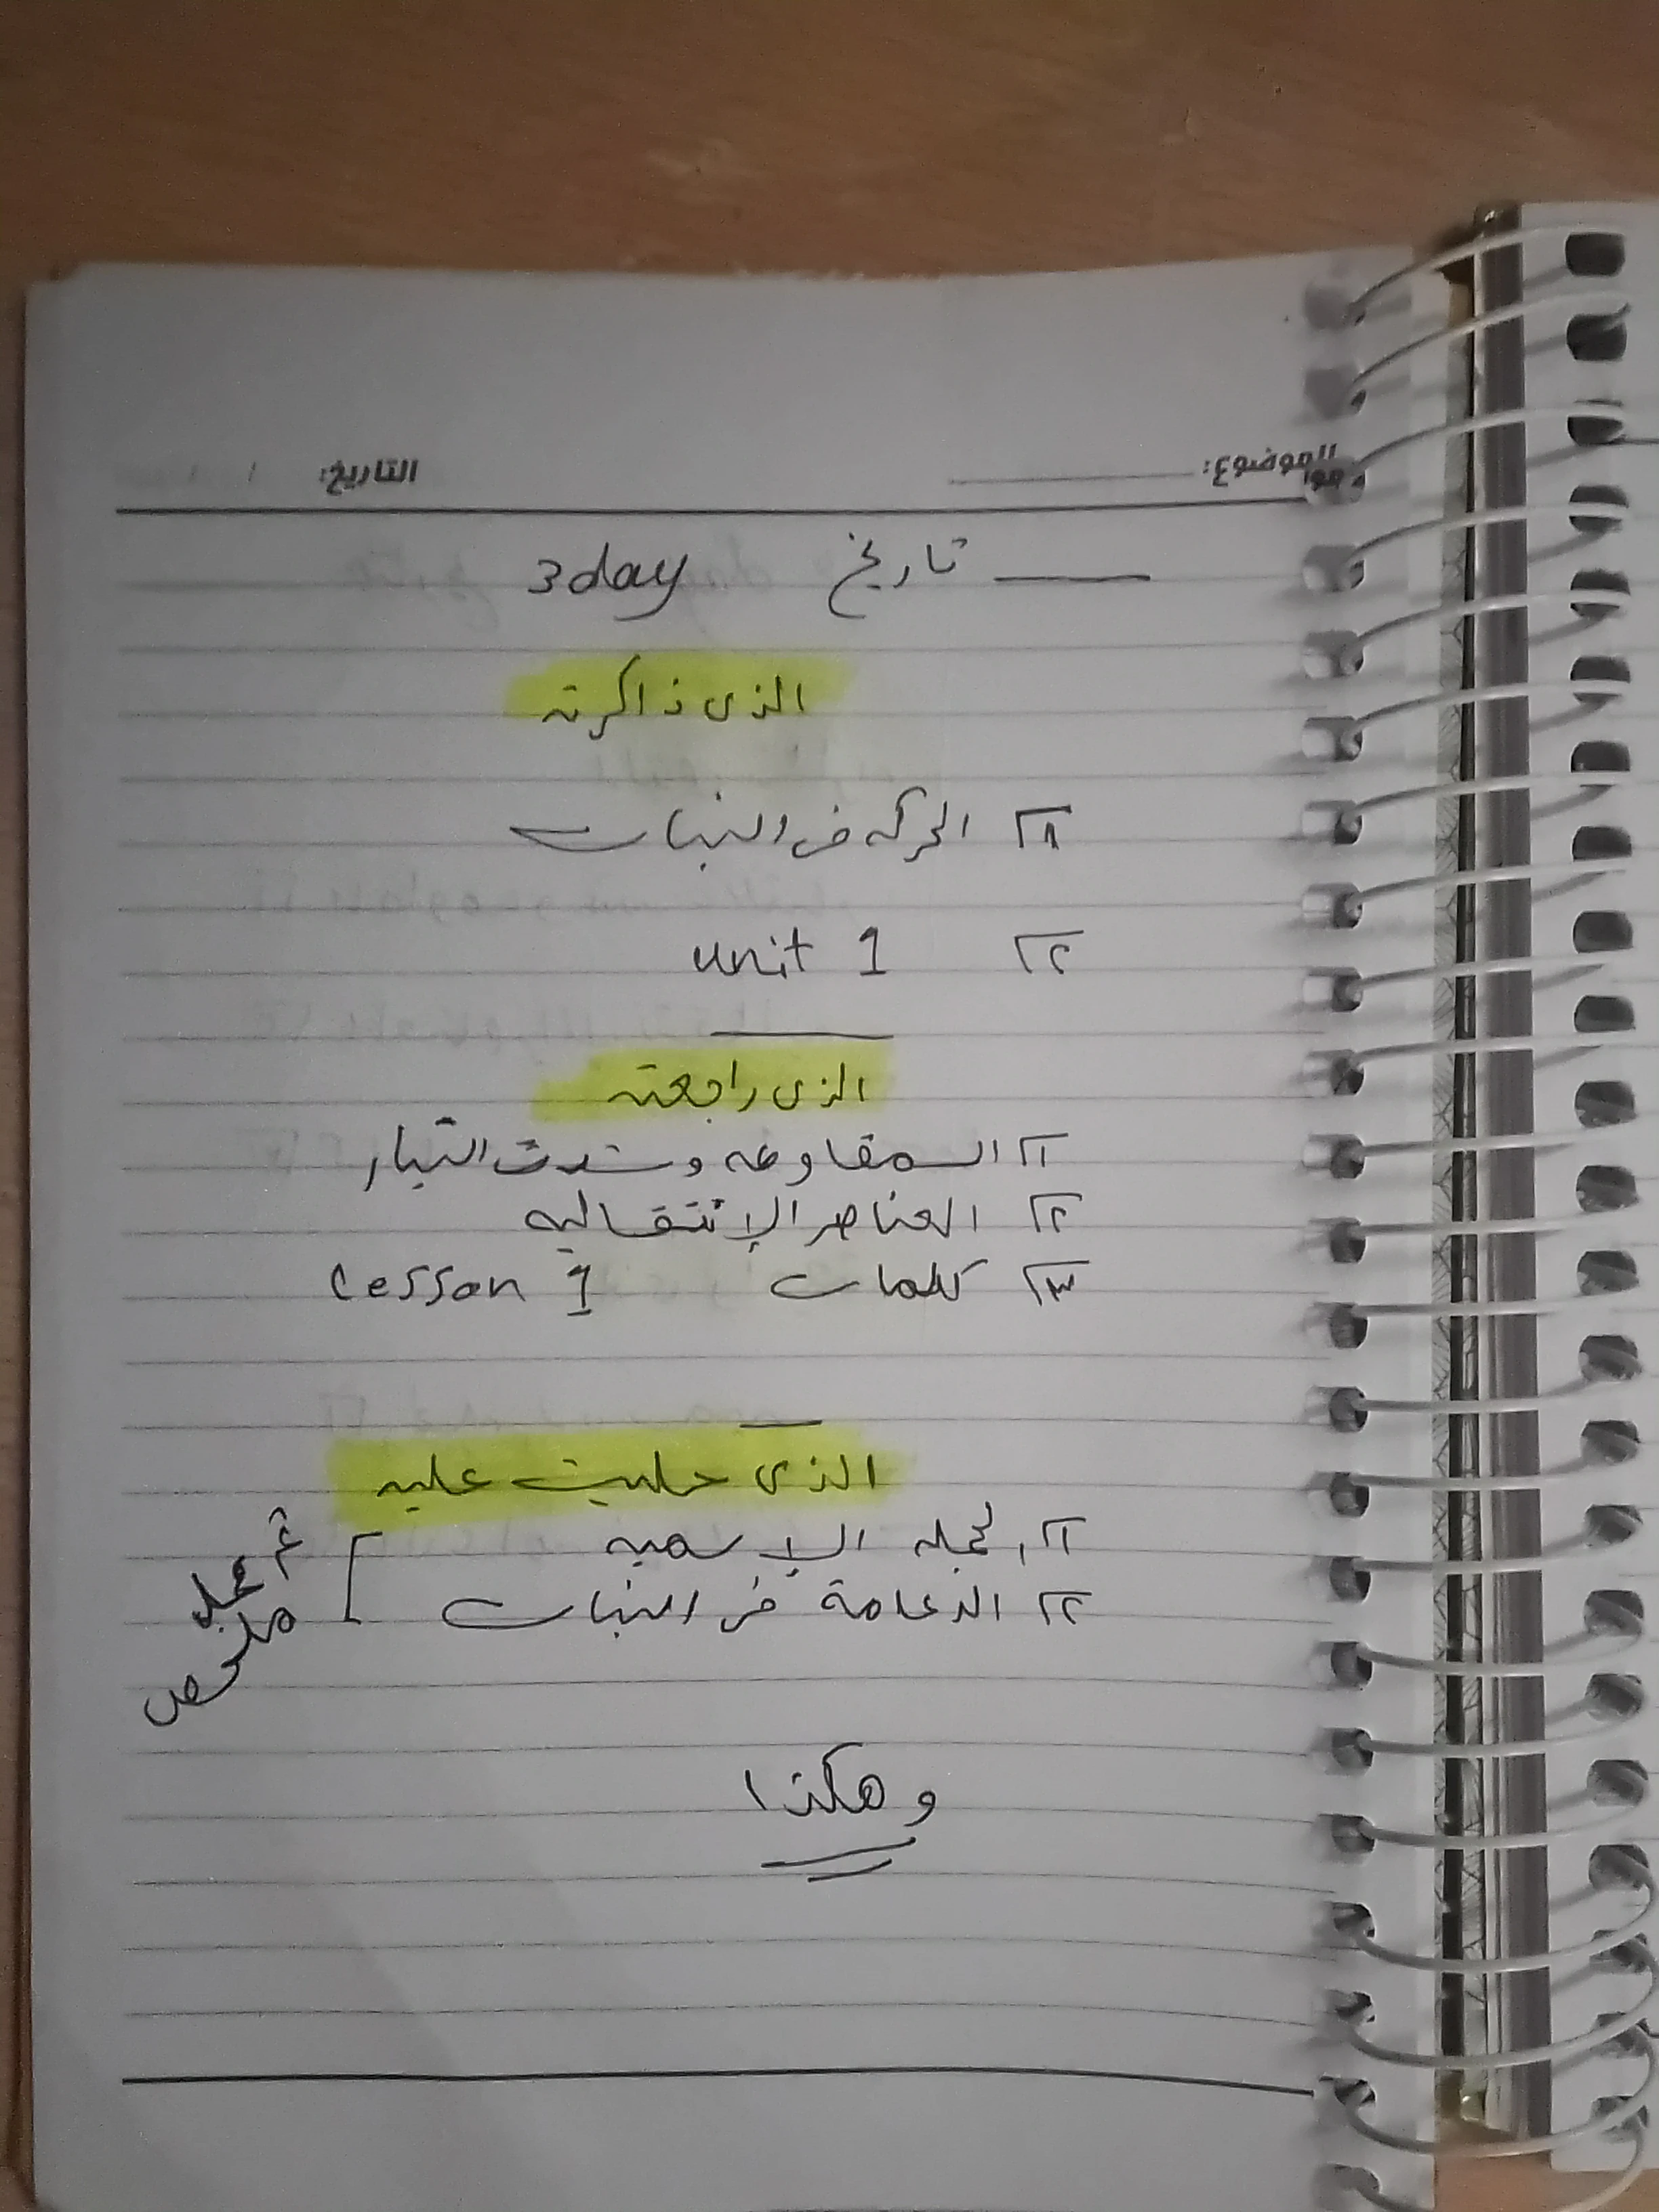 الموضوع: التاريخ: / /
تاريخ 3day
الذى ذاكرته
١] الحركه فى النبات
٢] unit 1
الذى راجعته
١] المقاومه وشدت التيار
٢] العناصر الإنتقاليه
٣] كلمات Lesson 1
الذى حليت عليه
١] الجمله الإسميه
٢] الدعامة فى النبات
ثم عمل
ملخص
وهكذا